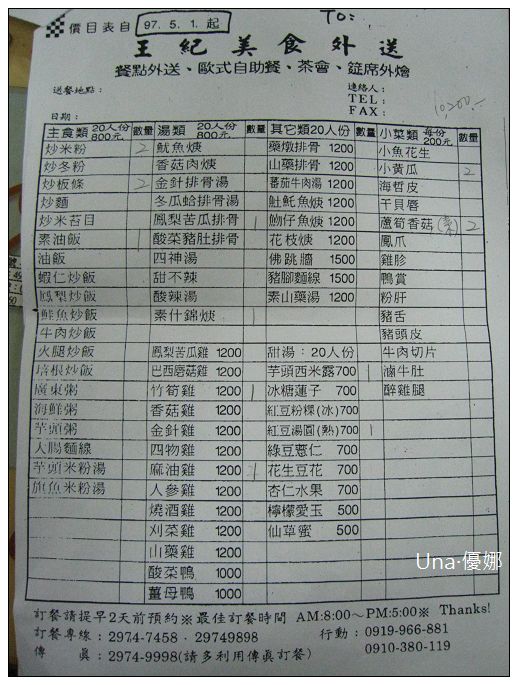 價目表自 97.5.1.起 TO:
王紀美食外送
餐點外送、歐式自助餐、茶會、筵席外燴
送餐地點：
連絡人：
TEL：
FAX：
10,200.-
日期：
主食類 20人份 800元 數量 湯類 20人份 800元 數量 其它類20人份 數量 小菜類 每份 200元 數量
炒米粉 2 魷魚羹 藥燉排骨 1200 小魚花生
炒冬粉 香菇肉羹 山藥排骨 1200 小黃瓜 2
炒粄條 2 金針排骨湯 蕃茄牛肉湯 1200 海哲皮
炒麵 冬瓜蛤排骨湯 魠魠魚羹 1200 干貝唇
炒米苔目 鳳梨苦瓜排骨 1 魩仔魚羹 1200 蘆筍香菇(素) 2
素油飯 1 酸菜豬肚排骨 花枝羹 1200 鳳爪
油飯 四神湯 佛跳牆 1500 雞胗
蝦仁炒飯 甜不辣 豬腳麵線 1500 鴨賞
鳳梨炒飯 酸辣湯 素山藥湯 1200 粉肝
鮭魚炒飯 素什錦羹 1 豬舌
牛肉炒飯 豬頭皮
火腿炒飯 鳳梨苦瓜雞 1200 甜湯：20人份 牛肉切片
培根炒飯 巴西蘑菇雞 1200 芋頭西米露700 1 滷牛肚
廣東粥 竹筍雞 1200 1 冰糖蓮子 700 醉雞腿
海鮮粥 香菇雞 1200 紅豆粉粿(冰)700
芋頭粥 金針雞 1200 紅豆湯圓(熱)700 1
大腸麵線 四物雞 1200 綠豆薏仁 700
芋頭米粉湯 麻油雞 1200 1 花生豆花 700
旗魚米粉湯 人參雞 1200 杏仁水果 700
燒酒雞 1200 檸檬愛玉 500
刈菜雞 1200 仙草蜜 500
山藥雞 1200
酸菜鴨 1000
薑母鴨 1000
Una·優娜
訂餐請提早2天前預約※最佳訂餐時間 AM:8:00～PM:5:00※ Thanks!
訂餐專線：2974-7458．29749898 行動：0919-966-881
傳 真：2974-9998(請多利用傳真訂餐) 0910-380-119